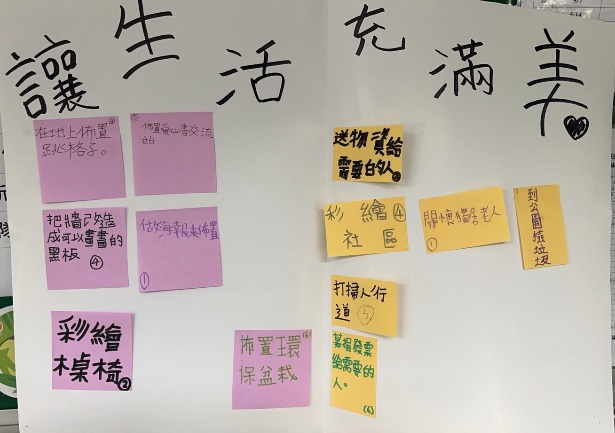 讓生活充滿美
在地上佈置
跳格子。
佈置愛心書交流
站
把牆改造
成可以畫畫的
黑板 ④
海報來佈置
①
彩繪
桌椅②
佈置環
保盆栽。
送物資給
需要的人
彩繪④
社區
關懷獨居老人
①
到公園撿垃圾
打掃人行
道 ⑤
募捐發票
給需要的
人。
(6)